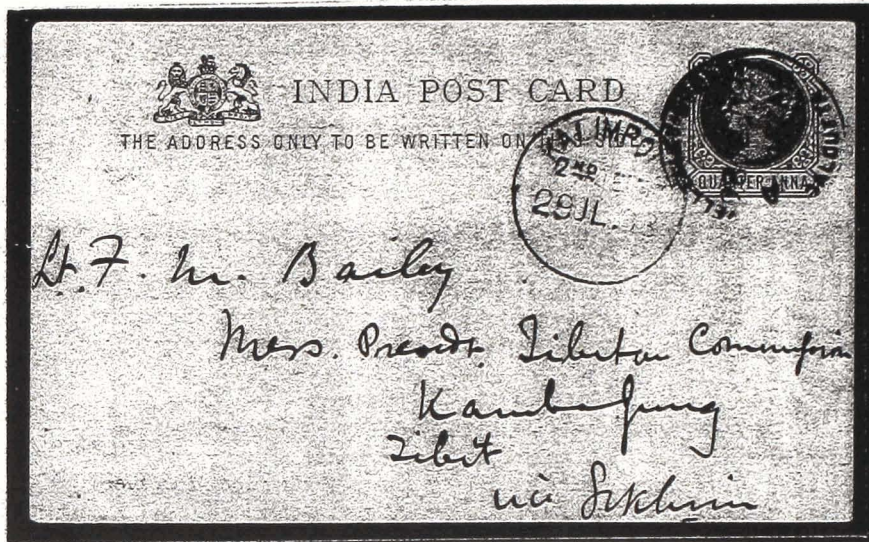 INDIA POST CARD
THE ADDRESS ONLY TO BE WRITTEN ON THIS SIDE
QUARTER ANNA
KALIMPO
2ND
29 JL.
Lt. F. M. Bailey
Mess. Presdt. Tibetan Commission
Kambajung
Tibet
via Sikhim